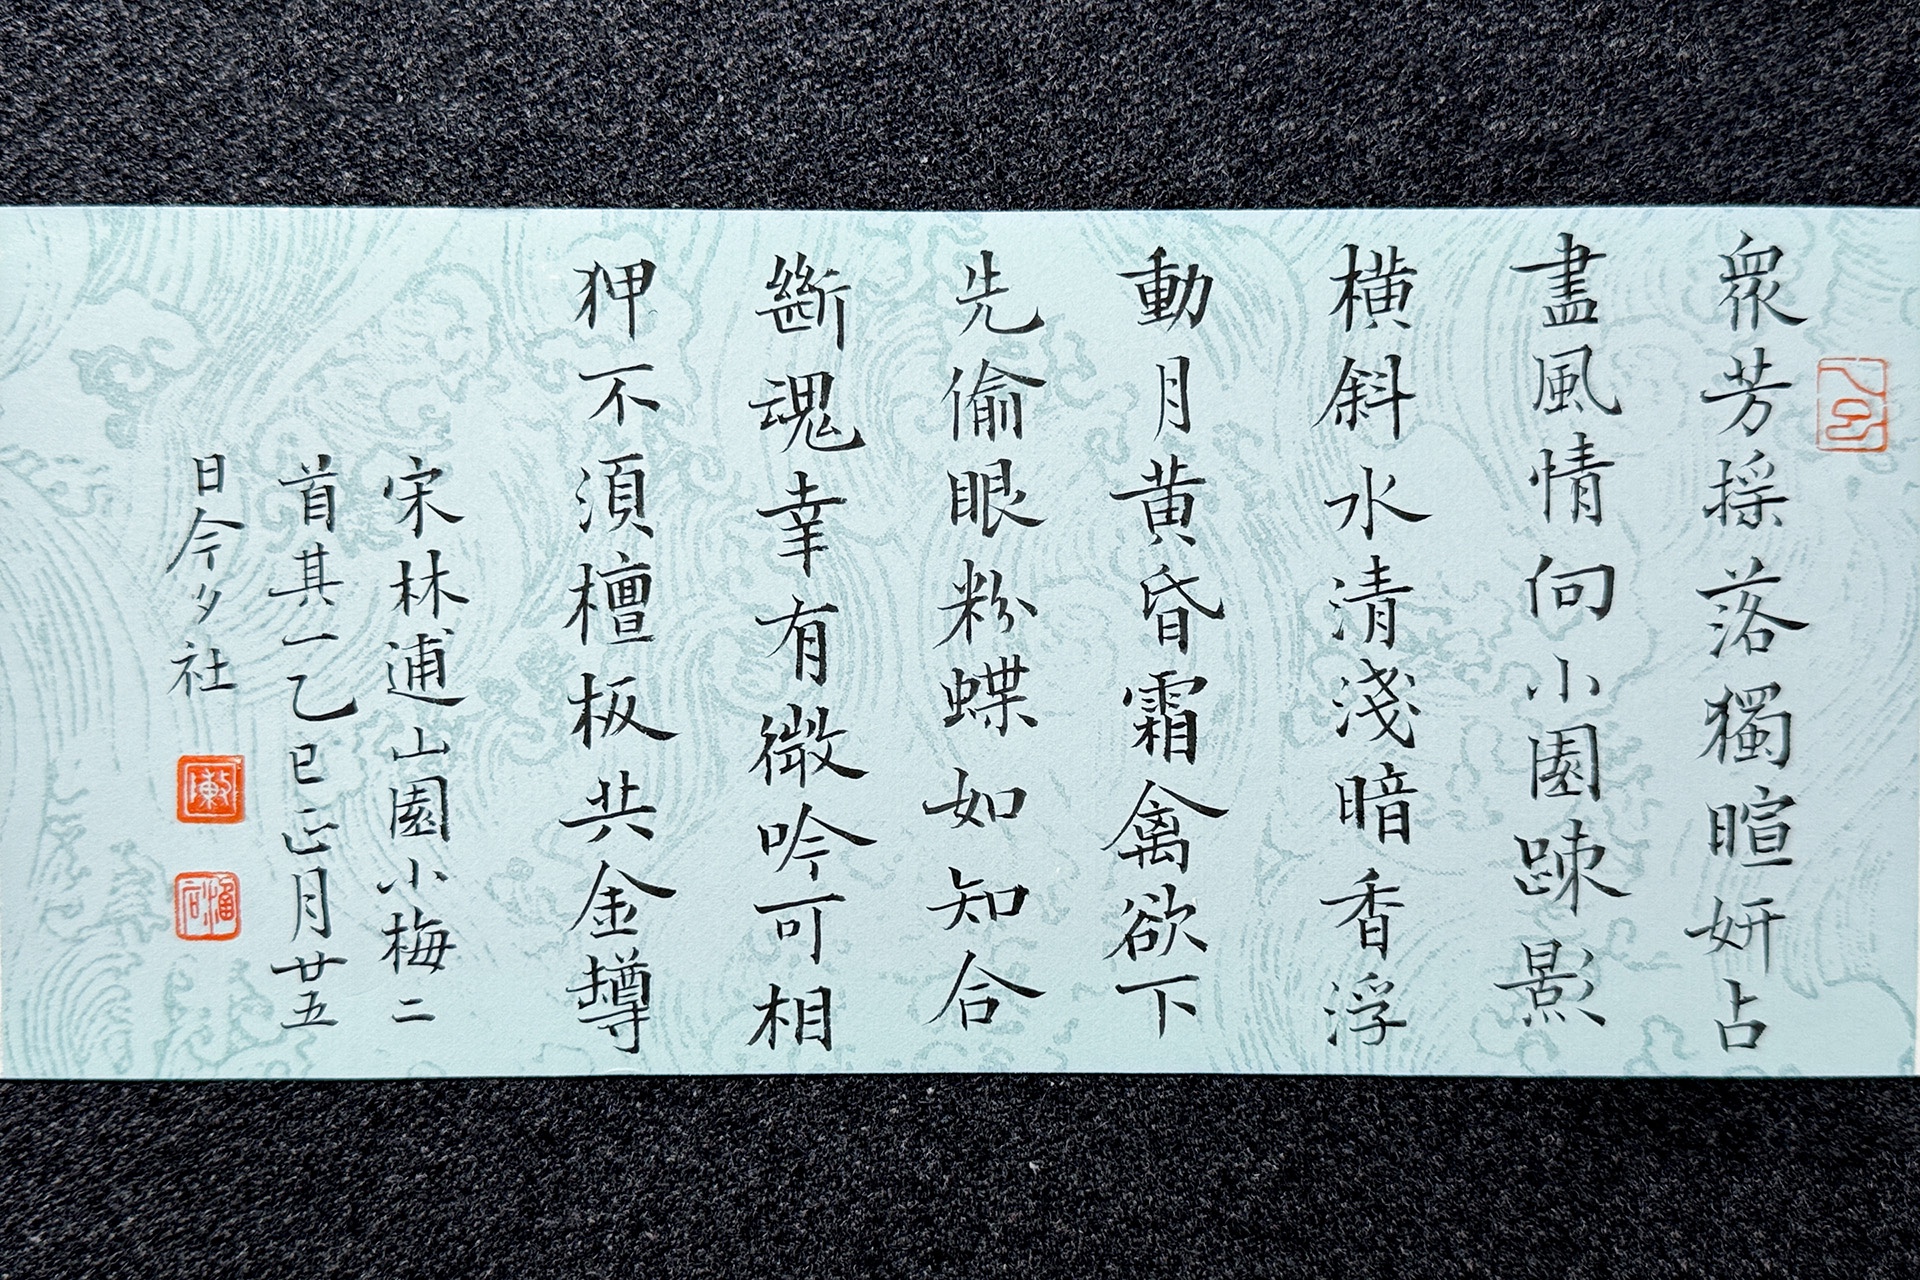 眾芳搖落獨暄妍占
盡風情向小園疎影
橫斜水清淺暗香浮
動月黃昏霜禽欲下
先偷眼粉蝶如知合
斷魂幸有微吟可相
狎不須檀板共金罇
宋林逋山園小梅二
首其一乙巳正月廿五
日今夕社